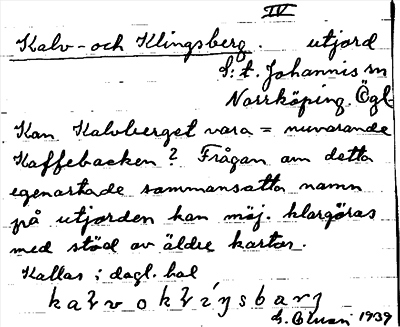 IV
Kalv- och Klingsberg. utjord
S:t. Johannis sn
Norrköping. Ögl.
Kan Kalvberget vara = nuvarande
Kaffebacken? Frågan om detta
egenartade sammansatta namn
på utjorden kan möj. klargöras
med stöd av äldre kartor.
Kallas i dagl. tal
1939